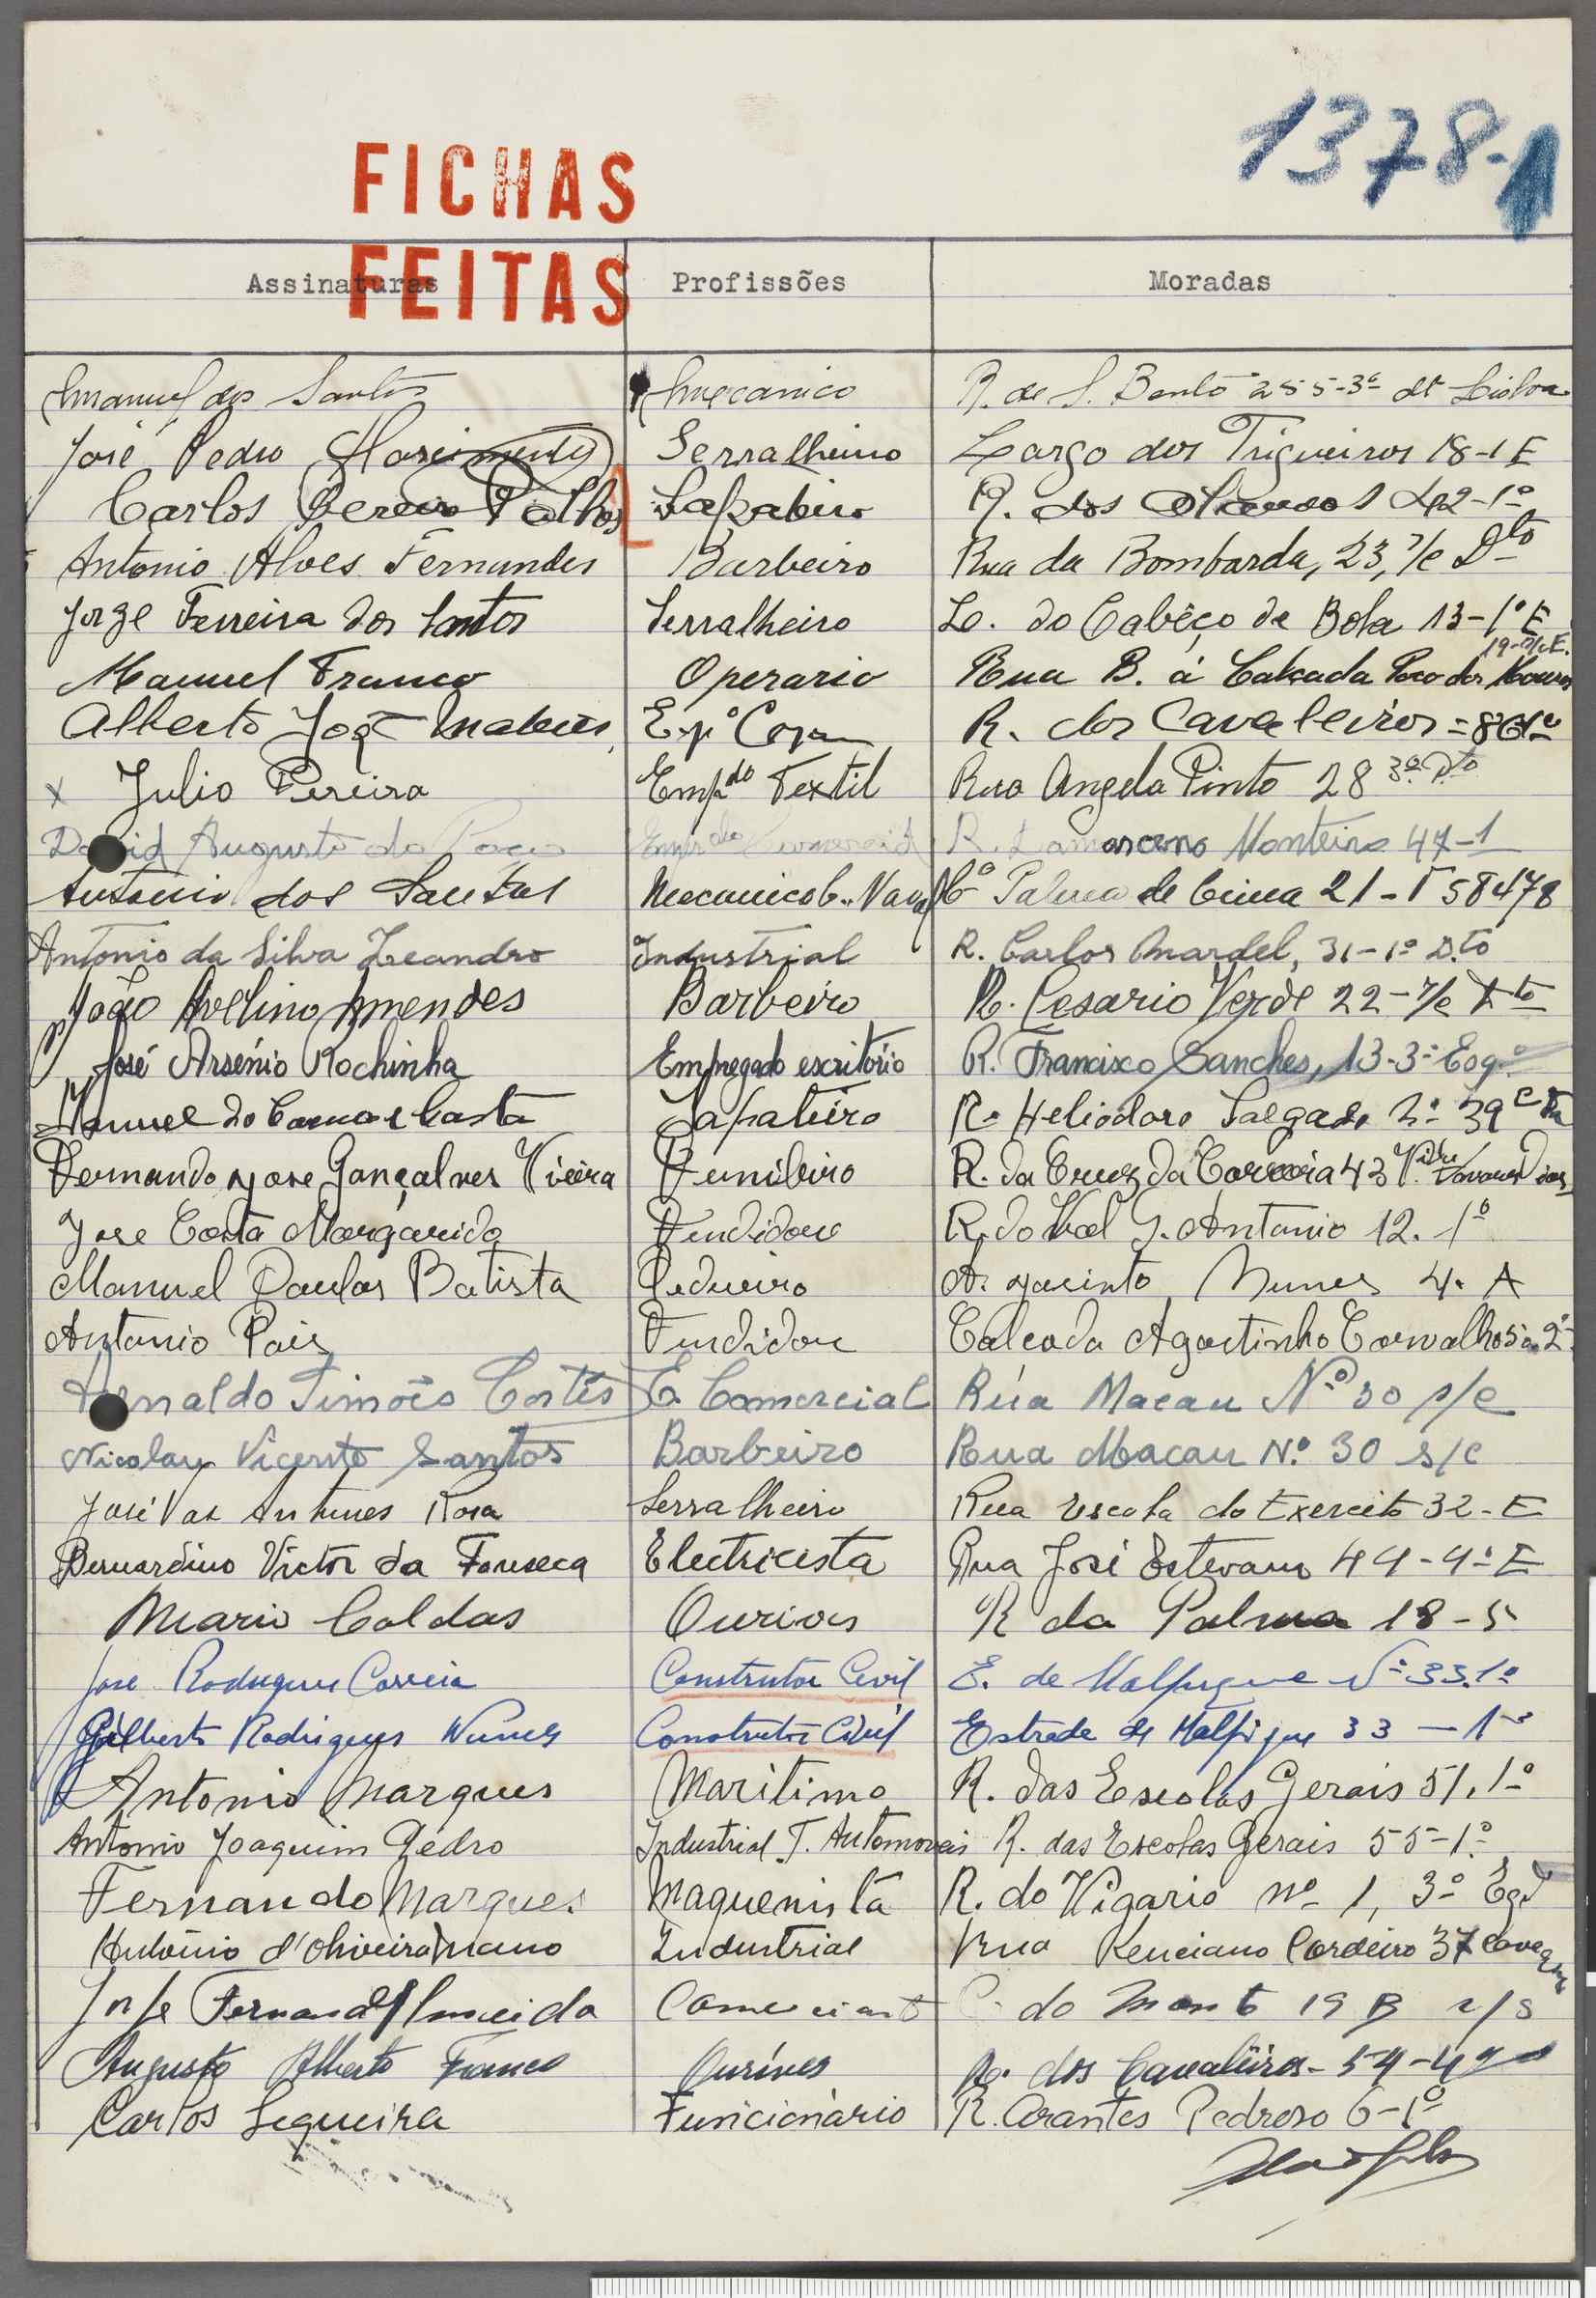 1378-1
FICHAS
FEITAS
Assinaturas Profissões Moradas
Manuel dos Santos Mecanico R. de S. Bento 255-3º dt Lisboa
José Pedro Nascimento Serralheiro Largo dos Trigueiros 18-1 E
Carlos Pereira Palhos Sapateiro R. dos 42-1º
Antonio Alves Fernandes Barbeiro Rua da Bombarda, 23, r/c Dto
Jorge Ferreira dos Santos Serralheiro Lo. do Cabêço de Bola 13-1º E
19-r/c E.
Manuel Franco Operario Rua B. á Calçada Poço dos Mouros
Alberto José Mateus Rua R. dos Cavaleiros = 86 1º
x Julio Pereira Empdo Textil Rua Angela Pinto 28 3º Dto
David Augusto do Paço Empdo Comercial R. Damasceno Monteiro 47-1
Antonio dos Santos Mecanico C. Naval Palma de Cima 21-
Antonio da Silva Leandro Industrial R. Carlos Mardel, 31-1º D.to
João Avelino Mendes Barbeiro R. Cesario Verde 22-r/c Dto
José Arsénio Rochinha Empregado escritório R. Francisco Sanches, 13-3º Esq.º
Manuel do Carmo Costa Sapateiro R. Heliodoro Salgado 39
Fernando Jose Gonçalves Vieira Funileiro R. da Cruz da Carreira 43
Jose Costa Margarido Vendidor R. do Val S. Antonio 12. 1º
Manuel Paulos Batista Pedreiro A. Jacinto Nunes 4. A
Antonio Pais Vendidor Calcada Agostinho Carvalho 2º
Arnaldo Simões Cortês E. Comercial Rúa Macau Nº 30 s/c
Nicolau Vicente Santos Barbeiro Rua Macau Nº 30 s/c
José Vaz Antunes Rosa Serralheiro Rua Escola do Exercito 32-E
Bernardino Victor da Fonseca Electricista Rua José Estevam 44-4º E
Mario Caldas Ourives R da Palma 18-5
Jose Rodrigues Correia Construtor Civil E. de Malpique Nº 33.1º
Gilberto Rodrigues Nunes Construtor Civil Estrada de Malpique 33 - 1º
Antonio Marques Maritimo R. das Escolas Gerais 51, 1º
Antonio Joaquim Pedro Industrial T. Automoveis R. das Escolas Gerais 55-1º
Fernando Marques Maquenista R. do Vigario nº 1, 3º Eqd
António d'Oliveira Mano Industrial Rua Luciano Cordeiro 37 cave
Jorje Fernand Almeida Comerciante C. do Monte 19 B
Augusto Alberto Ourives R. dos Cavaleiros - 54-4º
Carlos Sequeira Funcionário R. Arantes Pedroso 6-1º